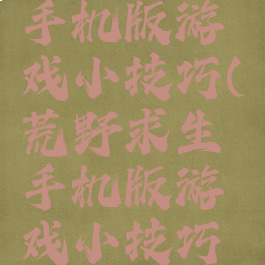 手机版游
戏小技巧(
荒野求生
手机版游
戏小技巧